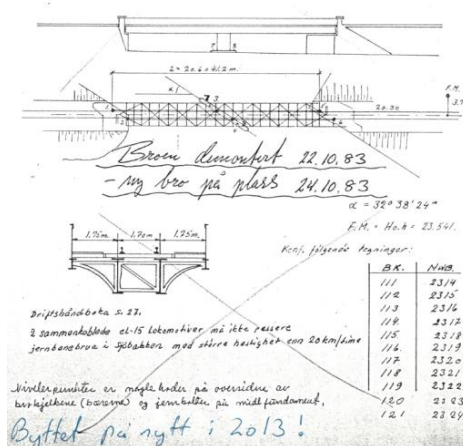 2 = 20.6 = 41.2 m.
20.30
F.M.
Broen demontert 22.10.83
- ny bro på plass 24.10.83
α = 32° 38' 24"
F.M. = Ho.h = 23.541.
Konf. følgende tegninger:
1,75m. 1,70m 1,75m.
BK. NWB.
111 2314
112 2315
113 2316
114 2317
115 2318
116 2319
117 2320
118 2321
119 2322
120 2323
121 2324
Driftshåndboka s. 27.
2 sammenkoblede el-15 lokomotiver må ikke passere
jernbanebrua i Sjøbakken med større hastighet enn 20 km/time
Nivellerpunkter er nagle hoder på oversiden av
brubjelkene (bærerne) og jernbolter på midtfundament.
Byttet på nytt i 2013!